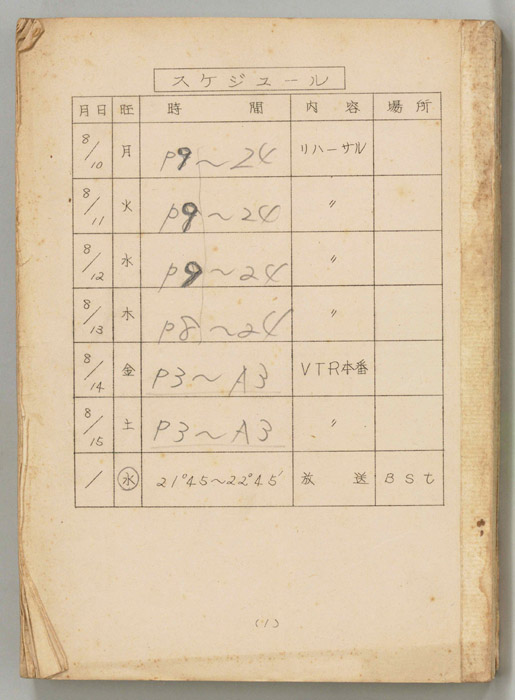 スケジュール
月日 旺 時間 内容 場所
8/10 月 P9〜24 リハーサル
8/11 火 P9〜24 〃
8/12 水 P9〜24 〃
8/13 木 P8〜24 〃
8/14 金 P3〜A3 VTR本番
8/15 土 P3〜A3 〃
/ ㊌ 21°45〜22°45' 放送 BSt
(1)